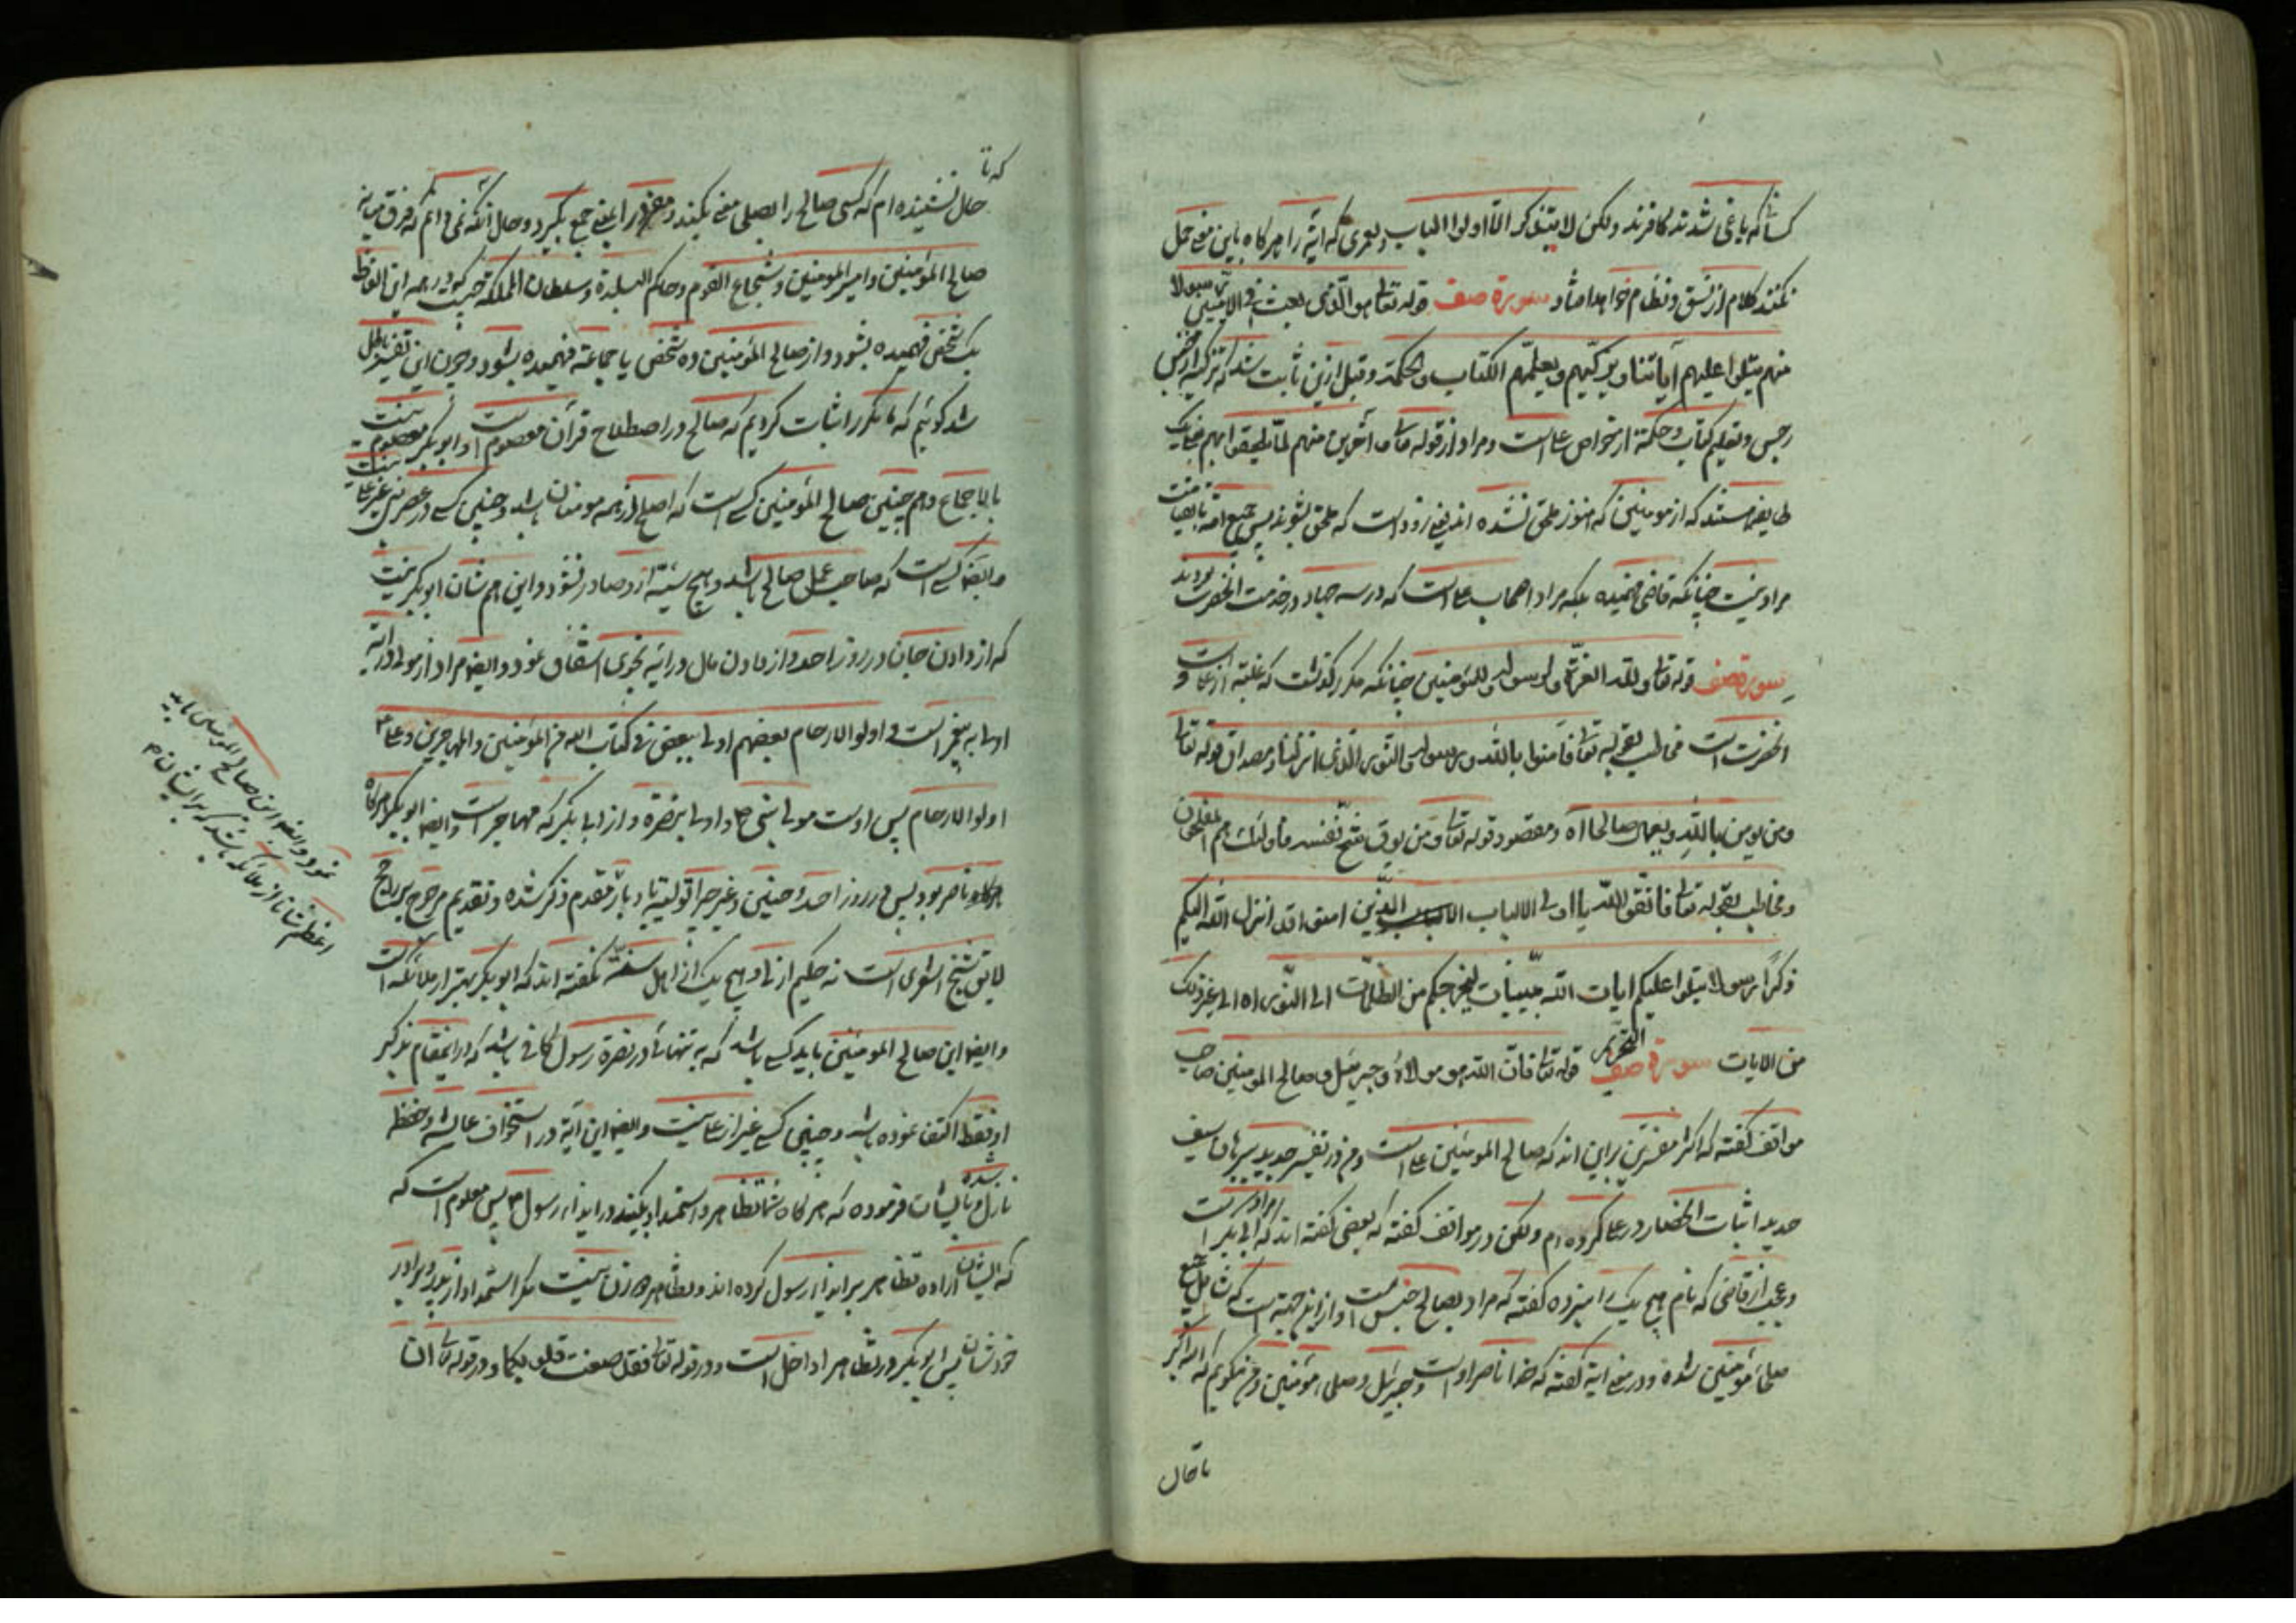 کسانیکه یاغی شدند کافرند ولکن لا یتذکر الا اولوا الباب ولعمری که آیه را هرگاه باین معنی حمل
نکنند کلام از نسق و نظام خواهد افتاد سورة صف قوله تعالی هو الّذی بعث فی الامیین رسولا
منهم یتلوا علیهم آیاتنا و یزکیهم و یعلمهم الکتاب والحکمة و قبل ازین ثابت شد که تزکیه از
رجس و تعلیم کتاب و حکمة از خواص علی است و مراد از قوله تعالی و آخرین منهم لمّا یلحقوا بهم
طایفه هستند که از مومنین که هنوز ملحق نشده اند یعنی زود است که ملحق بشوند پس جمیع امة
مراد نیست چنانکه قاضی فهمیده بلکه مراد اصحاب علی است که در سه جهاد در خدمت آنحضرت بودند
سورة صف قوله تعالی ولله العزّة ولرسوله وللمؤمنین چنانکه مکرر گذشت که غلبه از علی و
آنحضرت است مخاطب بقوله تعالی فآمنوا بالله ورسوله والنور الذی انزلنا و مصداق قوله تعالی
ومن یومن بالله ویعمل صالحا آه و مقصود قوله تعالی ومن یوق شحّ نفسه فاولئک هم المفلحون
و مخاطب بقوله تعالی فاتّقوا الله یا اولی الالباب الذین امنوا قد انزل الله الیکم
ذکرًا رسولا یتلوا علیکم ایات الله مبیّنات لیخرجکم من الظلمات الی النور آه الی غیر ذلک
من الایات سورة صف التحریم قوله تعالی فانّ الله هو مولاه و جبرئیل و صالح المومنین صاحب
مواقف گفته که اکثر مفسّرین براین اند که صالح المومنین علی است و من در تفسیر حدید ببرهان سیف
حدید اثبات انحصار در علی کرده ام ولکن در مواقف گفته که بعضی گفته اند که ابی بکر مراد است
و عجب از قاضی که نام هیچ یک را نبرده گفته که مراد بصالح جنس است و از این جهة است که شامل جمیع
صلحاء مؤمنین شده و در معنی ایة گفته که خدا ناصر اوست و جبرئیل و صلحاء مؤمنین و من میگویم که الله اکبر
تا حال
که تا
حال نشنیده ام که کسی صالح را بصلحی معنی بکند و مفرد را بمعنی جمع بگیرد و حال آنکه نمی دانم که فرق میانه
صالح المؤمنین و امیر المومنین و شجاع القوم و حاکم البلدة و سلطان المملکة چیست که از همه این الفاظ
یک شخص فهمیده بشود و از صالح المؤمنین ده شخص یا جماعة فهمیده بشود و چون این تفسیر باطل
شد گوئیم که ما مکرر اثبات کردیم که صالح در اصطلاح قرآن معصوم است و ابوبکر معصوم نیست
بالاجماع و هم چنین صالح المؤمنین کسی است که اصلح از همه مومنان باشد و چنین کسی در عصر نبی غیر علی نیست
و ایضا کسی است که صاحب عمل صالح باشد و هیچ سیّئه از و صادر نشود و این هم شان ابوبکر نیست
که از دادن جان در روز احد و از دادن مال در ایه نجوی اشفاق نمود و ایضا مراد از مولی در آیه
اولی به پیغمبر است و اولو الارحام بعضهم اولی ببعض فی کتاب الله من المؤمنین والمهاجرین و علی
اولو الارحام پس اوست مولی نبی و اولی بنصرة و از ابابکر که مهاجر است و ایضا ابوبکر هرگاه
ناصر بود پس در روز احد و حنین و غیر چرا تولیت باد بار مقدم ذکر شده و تقدیم مرجوح بر راجح
لایق شیخ اشعری است نه حکیم ازلی و هیچ یک از اهل سنة نگفته اند که ابوبکر بهتر از ملائکه است
و ایضا این صالح المومنین باید کسی باشد که به تنهائی در نصرة رسول کافی باشد که در اینمقام بذکر
او فقط اکتفا نموده باشد و چنین کسی غیر از علی نیست و ایضا این آیه در استخواف عایشه و حفصه
نازل شده و بایشان فرموده که هرگاه شما تظاهر و استمداد بکنید در ایذاء رسول پس معلوم است که
که ایشان اراده تظاهر بر ایذاء رسول کرده اند و تظاهر زنان نیست مگر استمداد از پدر و برادر
خودشان پس ابوبکر در تظاهر ادخل است و در قوله تعالی فقد صغت قلوبکما و در قوله تعالی ان
نمود و ایضا این صالح المومنین باید
اعظم شانا از ملائکه باشد که بر ایشان